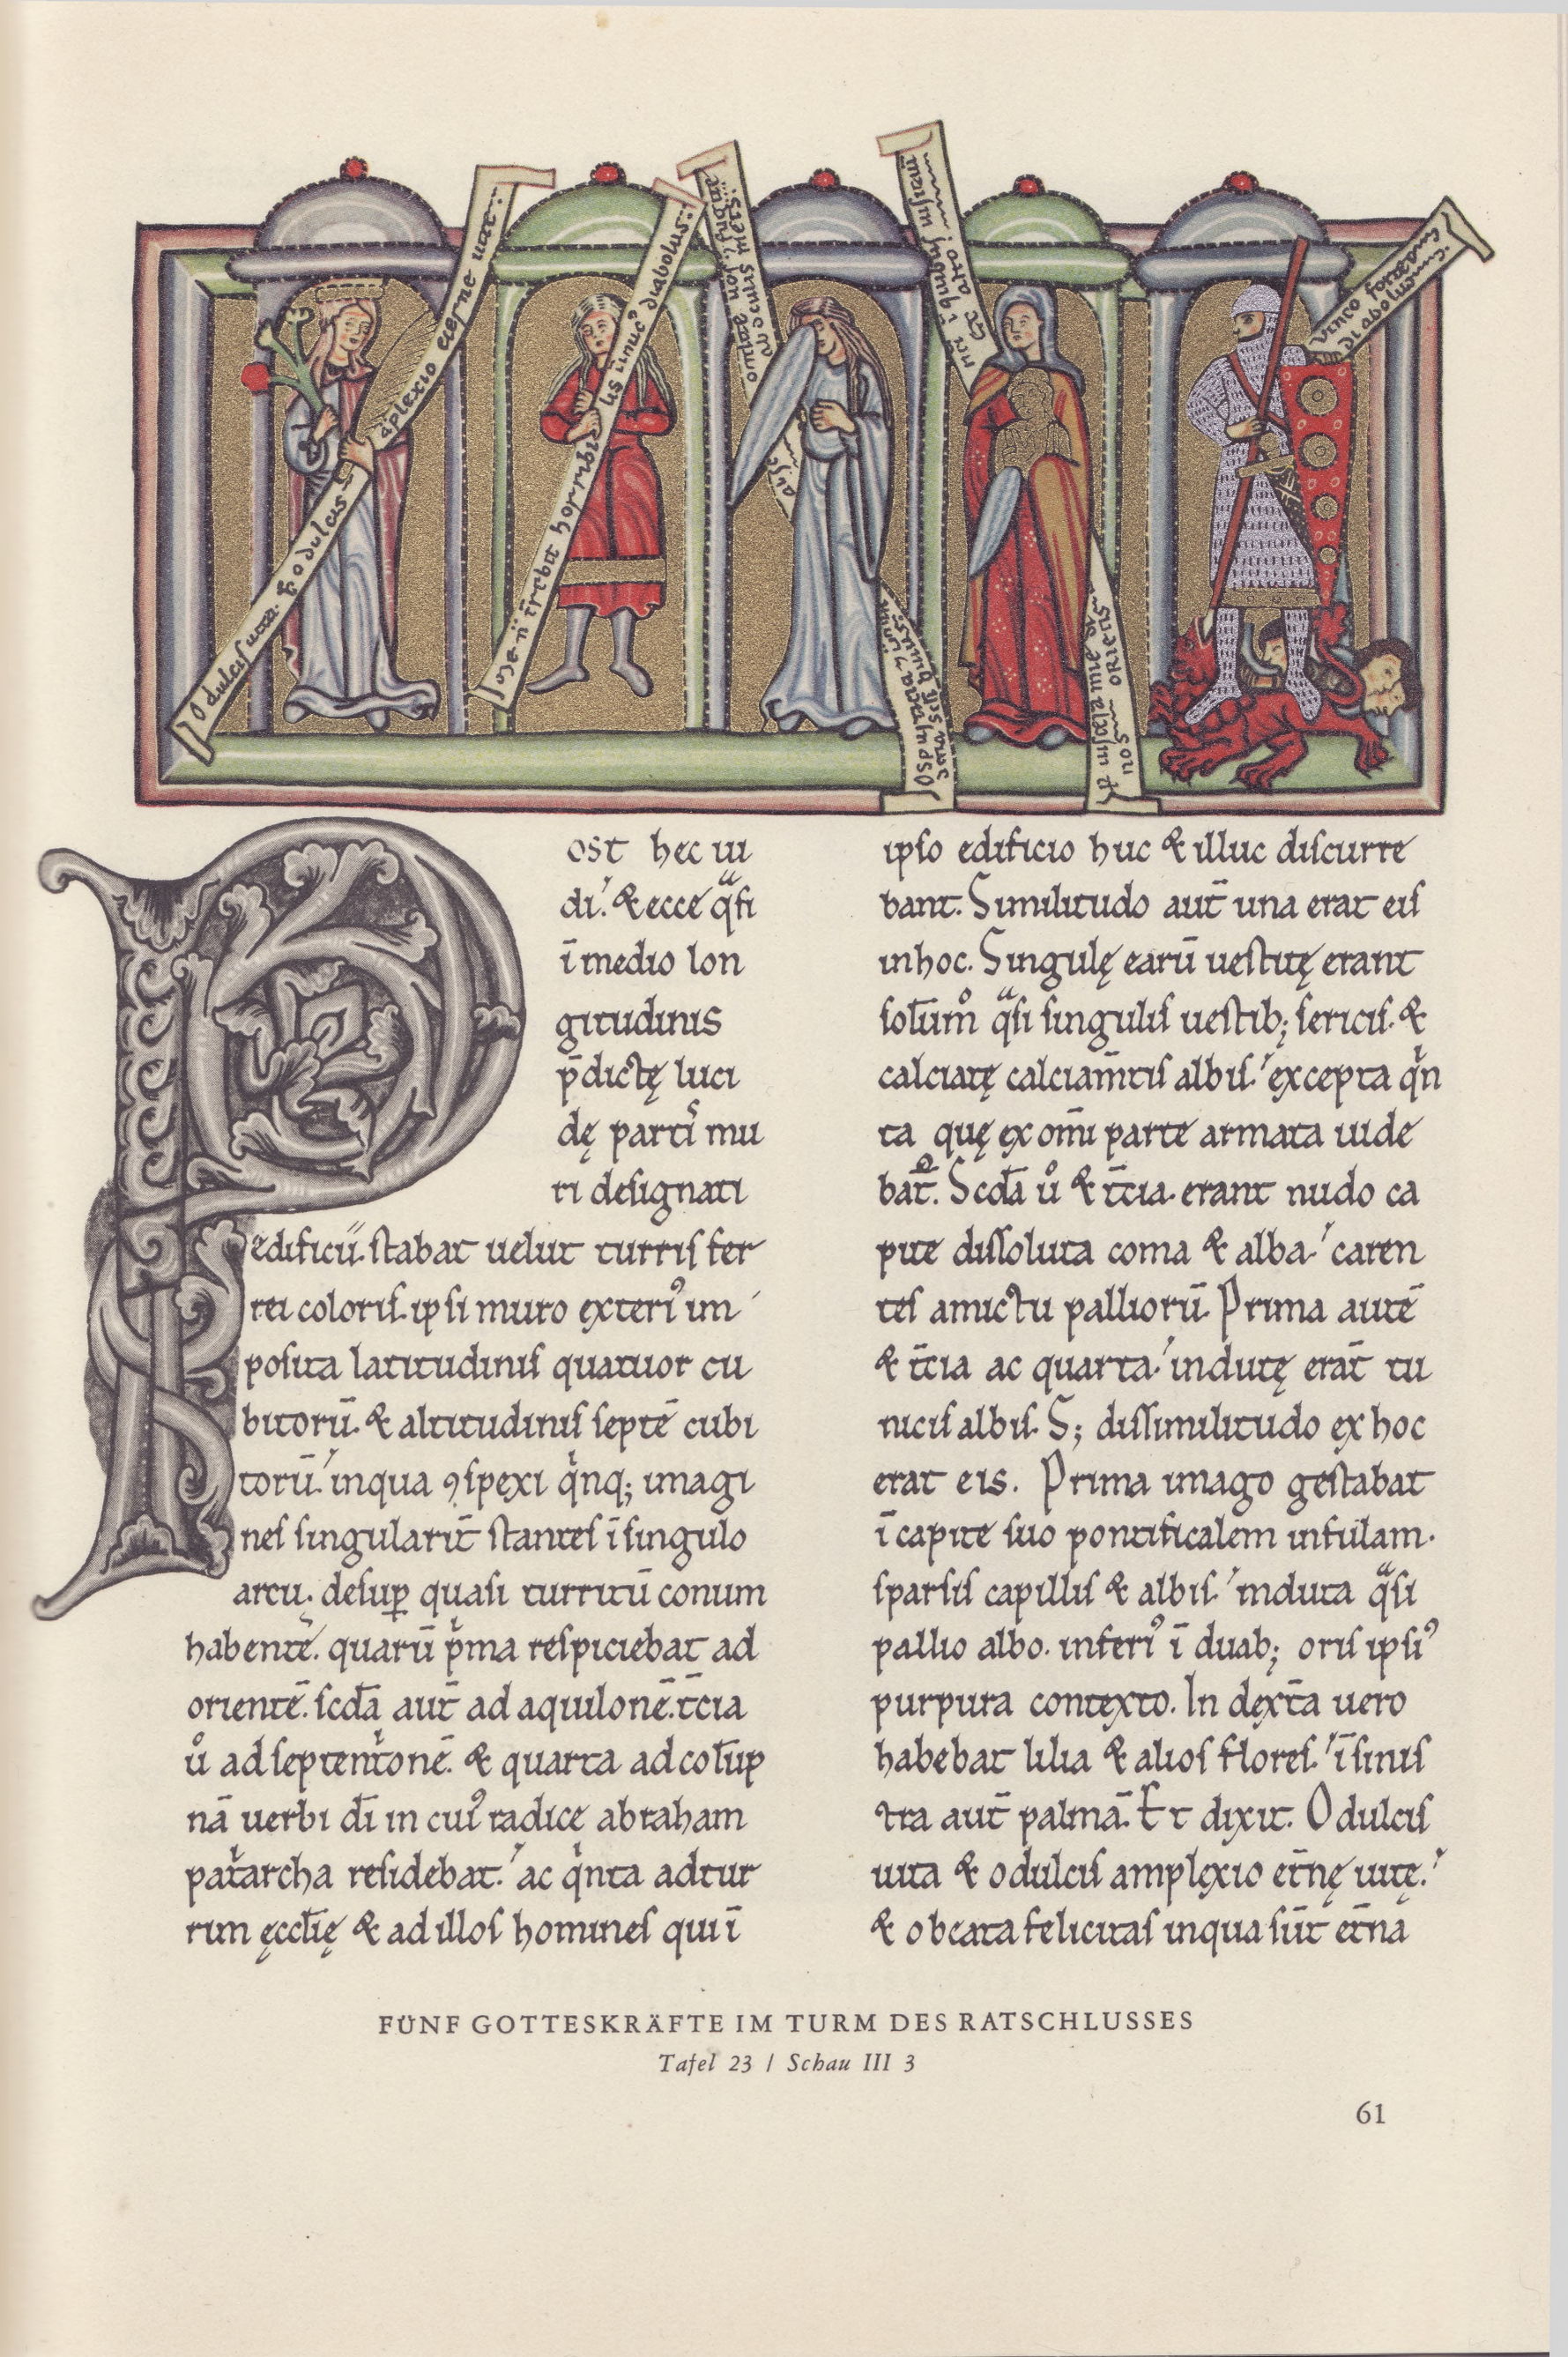 O dulcis uita. & o dulcis
aplexio eterne uite
diabolus
uinco fortem
diabolum
ost hec ui
di. & ecce qͣsi
ī medio lon
gitudinis
p̄dictę luci
dę partiˢ mu
ri designati
edificii. stabat uelut turris fer
rei coloris. ipsi muro exteri᾽ im
posita latitudinis quatuor cu
bitorū. & altitudinis septē cubi
torū. inqua ꝯspexi qͥnq; imagi
nes singularit̄ stantes ī singulo
arcu; desuꝑ quasi turritū conum
habentē. quarū pͥma respiciebat ad
orientē. scd̄a aut̄ ad aquilonē. t̄cia
ů ad septentͥonē. & quarta ad colūp
nā uerbi dī in cui᾽ radice abraham
patͥarcha residebat. ac qͥnta ad tur
rim ęcclię & ad illos homines qui ī
ipso edificio huc & illuc discurre
bant. Similitudo aut̄ una erat eis
inhoc. Singulę earū uestitę erant
solūmͦ qͣsi singulis uestib; sericis. &
calciatę calciam̄tis albis. excepta qͥn
ta quę ex om̄i parte armata uide
bat᷑. Scd̄a ů & t̄cia. erant nudo ca
pite dissoluta coma & alba. caren
tes amictu palliorū. Prima autē
& t̄cia ac quarta. indutę erāt tu
nicis albis. S; dissimilitudo ex hoc
erat eis. Prima imago gestabat
ī capite suo pontificalem infulam.
sparsis capillis & albis. induta qͣsi
pallio albo. inferi᾽ ī duab; oris ipsi᾽
purpura contexto. In dext̄a uero
habebat lilia & alios flores. ī sinis
tra aut̄ palmā. Et dixit. O dulcis
uita & o dulcis amplexio et̄nę uitę.
& o beata felicitas inqua sūt et̄na
FÜNF GOTTESKRÄFTE IM TURM DES RATSCHLUSSES
Tafel 23 / Schau III 3
61